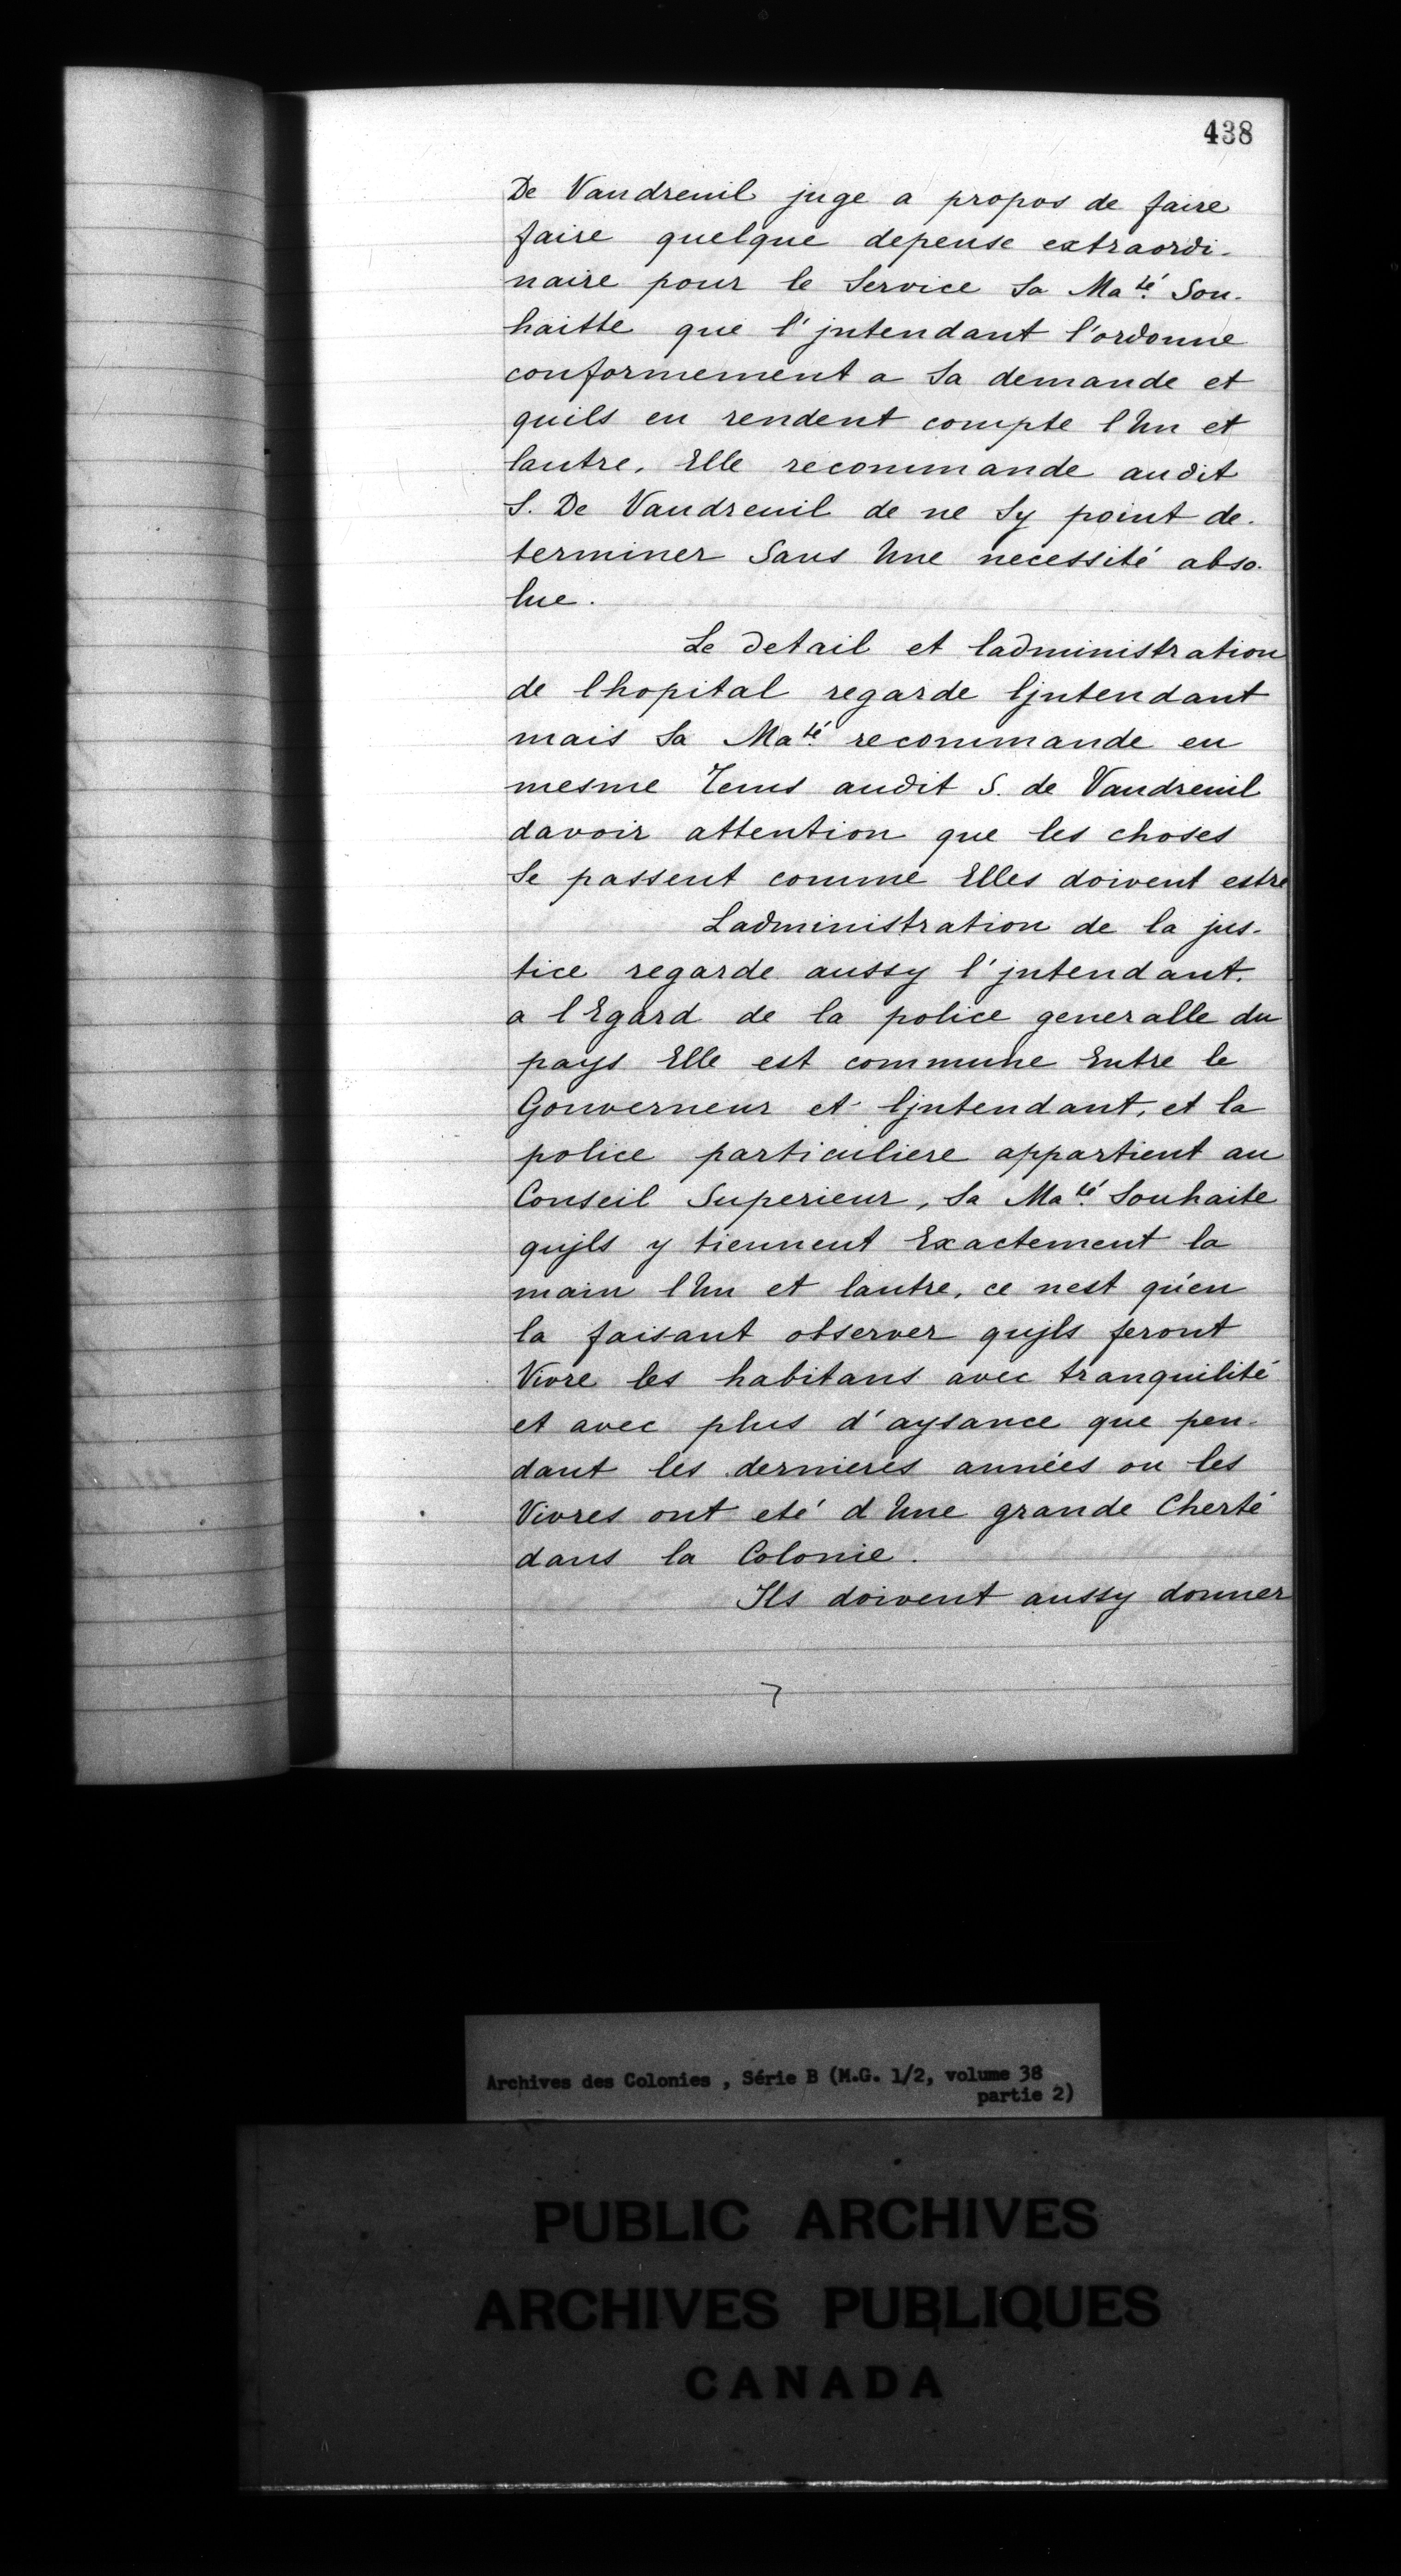 438
De Vaudreuil juge a propos de faire
faire quelque depense extraordi-
naire pour le Service Sa Maté Sou-
haitte que l'jntendant l'ordonne
conformement a Sa demande et
quils en rendent compte l Un et
lautre. Elle recommande audit
S. De Vaudreuil de ne Sy point de-
terminer Sans Une necessité abso-
lue.
Le detail et ladministration
de lhopital regarde ljntendant
mais Sa Maté recommande en
mesme Tems audit S. de Vaudreuil
davoir attention que les choses
Se passent comme Elles doivent estre
Ladministration de la jus-
tice regarde aussy l'jntendant.
a l Egard de la police generalle du
pays Elle est commune Entre le
Gouverneur et ljntendant, et la
police particuliere appartient au
Conseil Superieur, Sa Maté Souhaite
qujls y tiennent Exactement la
main l Un et lautre, ce nest qu'en
la faisant observer qujls feront
Vivre les habitans avec tranquilité
et avec plus d'aysance que pen-
dant les dernieres années ou les
Vivres ont eté d Une grande Cherté
dans la Colonie.
Ils doivent aussy donner
7
Archives des Colonies , Série B (M.G. 1/2, volume 38
partie 2)
PUBLIC ARCHIVES
ARCHIVES PUBLIQUES
CANADA